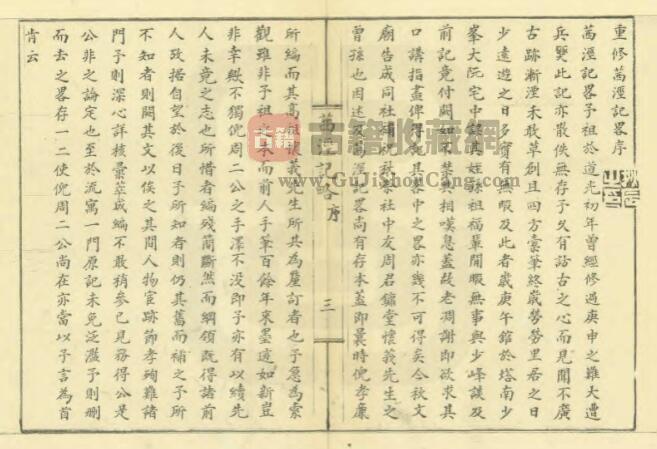 重修萬溼記畧序
萬溼記畧予祖於道光初年曾經修過庚申之難大遭
兵燹此記亦散佚無存予久有諮古之心而見聞不廣
古跡漸湮未敢草創且四方橐筆終歲勞勞里居之日
少遠遊之日多實有無暇及此者歲庚午館於塔南少
峯大阮宅中錄其姪祖福藁閒暇無事與少峰談及
前記竟付闕如不禁共相嘆息蓋故老凋謝即欲求其
口講指畫俾得記其中之畧亦幾不可得矣今秋文
廟告成同社補祝社中友周君鏞堂懷莪先生之
曾孫也因述及萬溼記畧尚有存本蓋即曩時倪孝廉
萬溼記畧 序
三
所編而其高祖懷義先生所共為釐訂者也予急為索
觀雖非予祖之本而前人手筆百餘年來墨迹如新豈
非幸歟不獨倪周二公之手澤不沒即予亦有以續先
人未竟之志也所惜者編殘簡斷然而綱領既得諸前
人攷據自望於後日予所知者則仍其舊而補之予所
不知者則闕其文以俟之其間人物宦跡節孝殉難諸
門予則深心詳核彙萃成編不敢稍參己見務得公是
公非之論定也至於流寓一門原記未免泛濫予則刪
而去之畧存一二使倪周二公尚在亦當以予言為首
肯云
古籍收藏網
www.GuJiShouCang.com